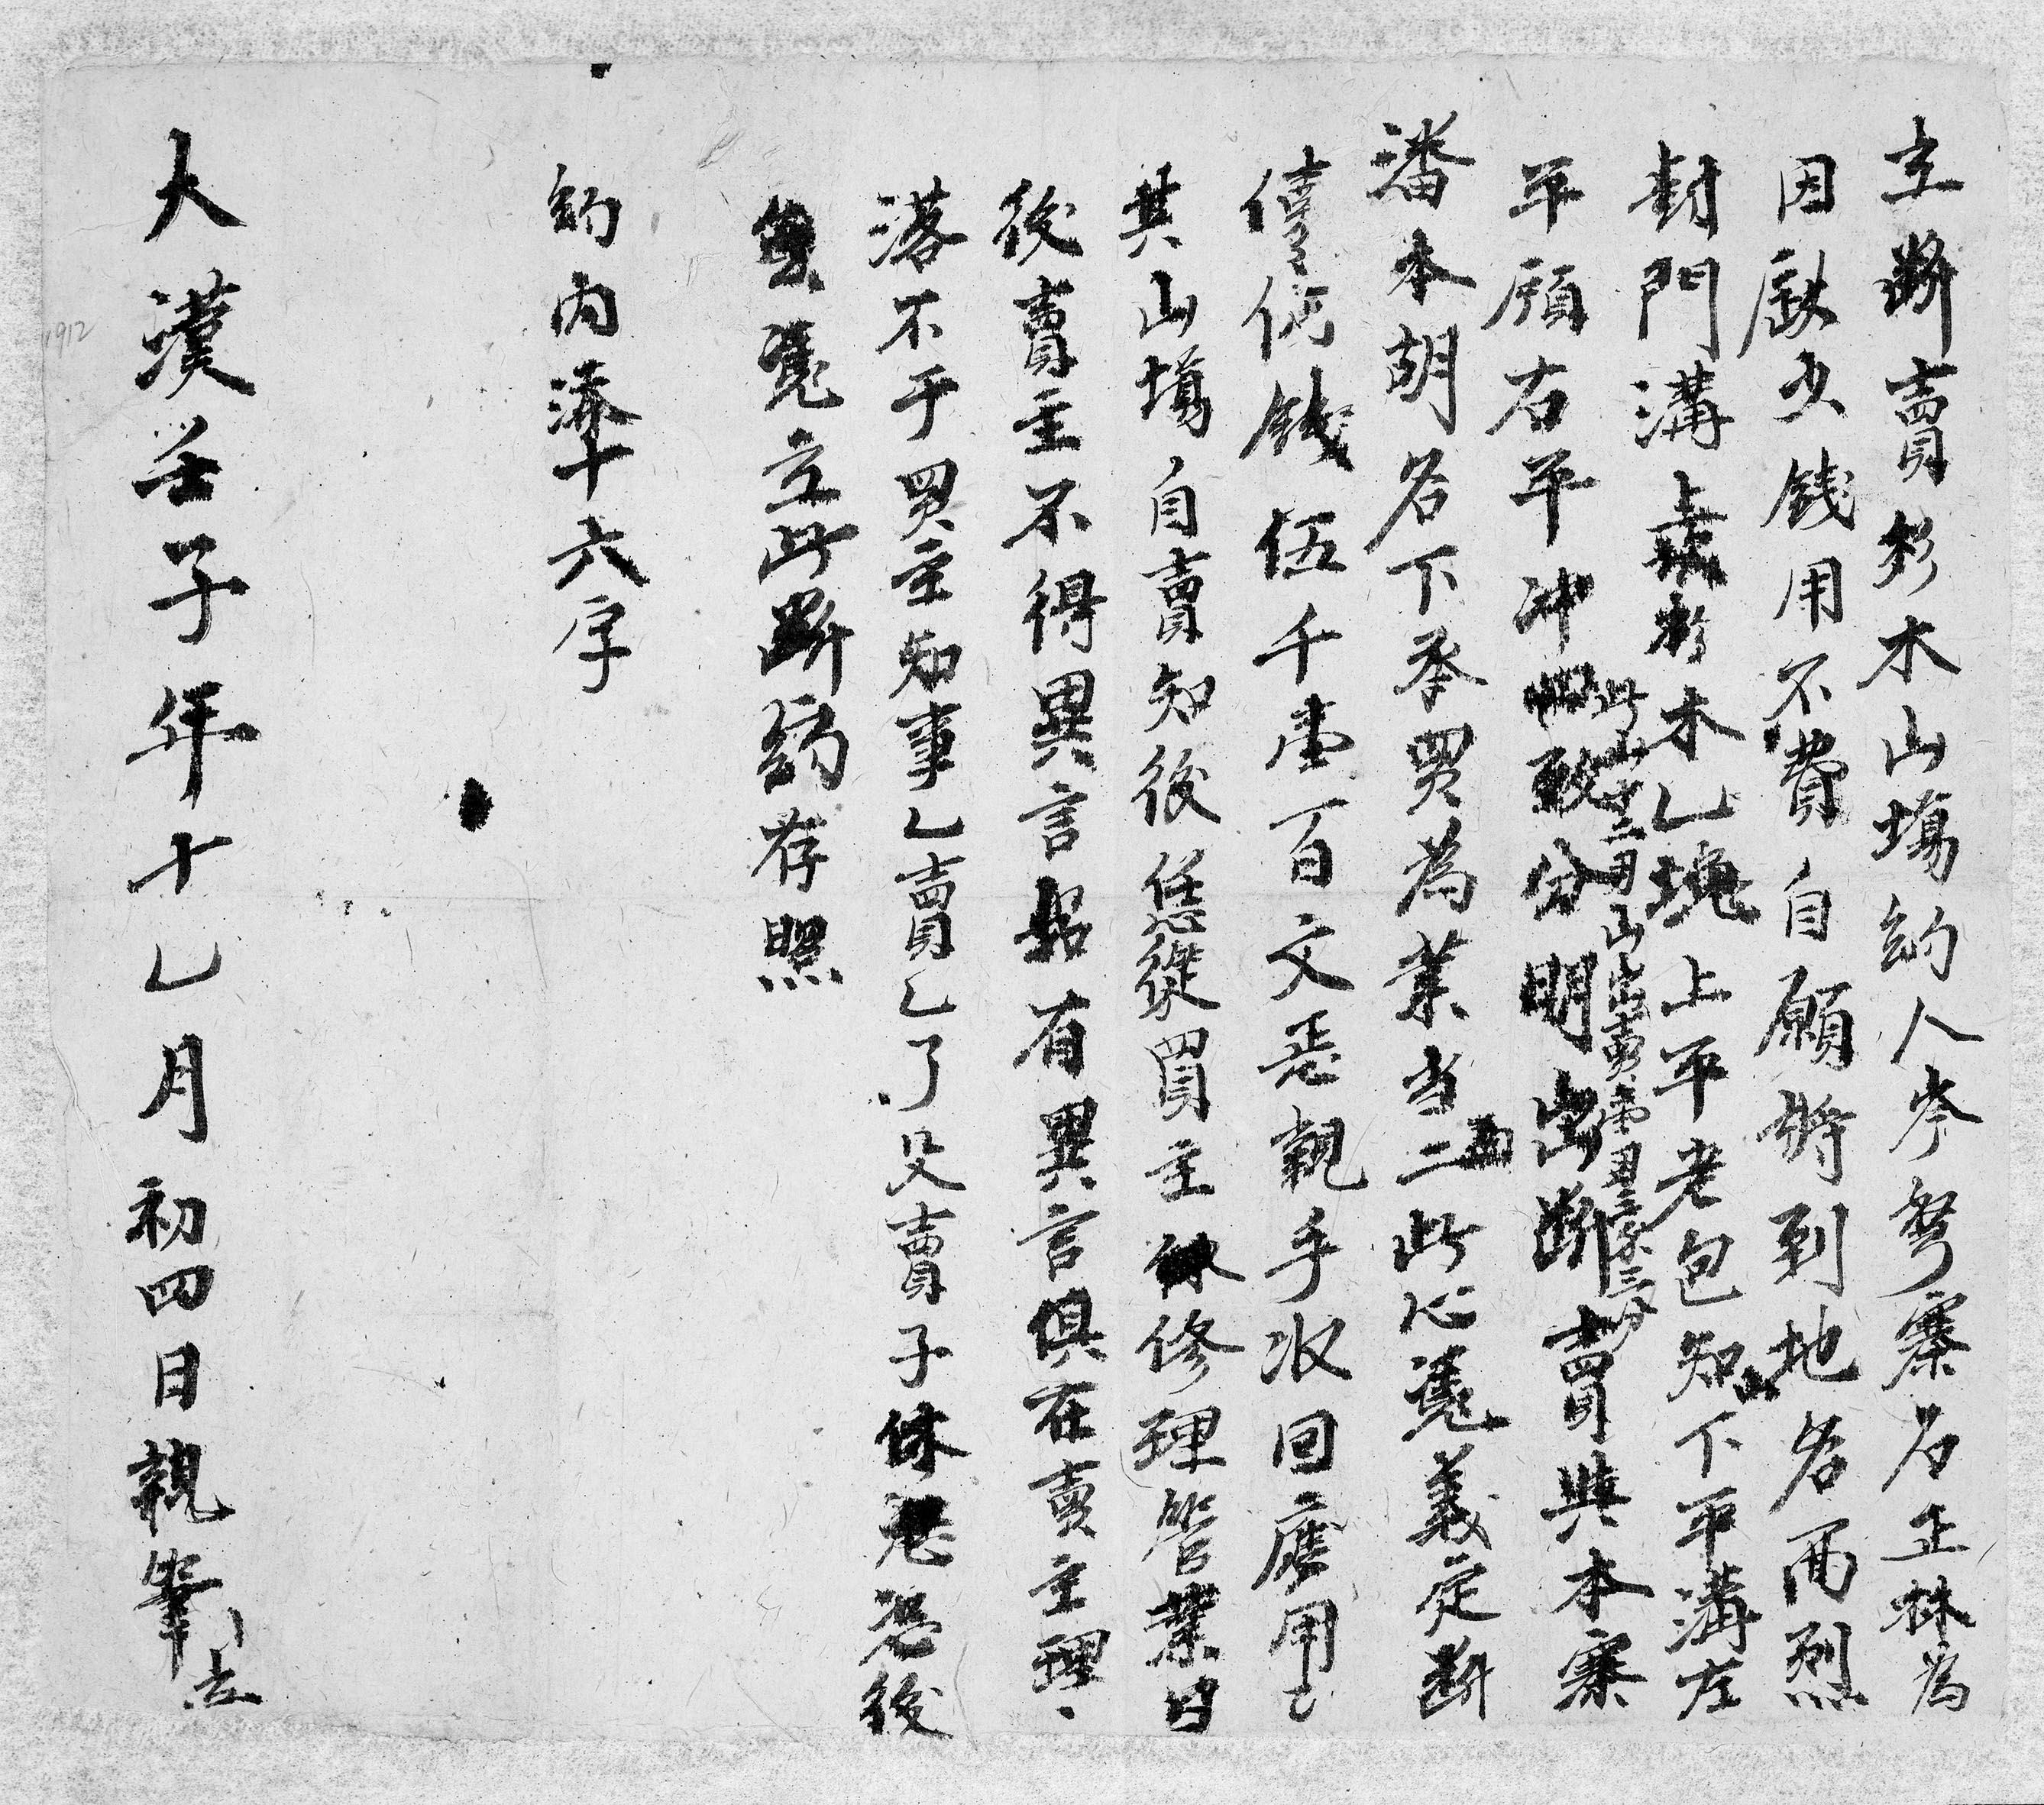 立斷賣杉木山場約人岑努寨石正林為
因缺少錢用不費自願將到地名両烈
封門溝杉木乙塊上平老包知下平溝左
平願右平冲四致分明出斷賣與本寨
此山十二刃山出賣
潘本胡名下承買為業当二此心憑義定斷
價錢伍千壹百文恁親手收回應用
其山場自賣知後恁從買主修理管業日
後賣主不得異言如有異言俱在賣主理
落不于買主知事乙賣乙了父賣子休恐後
無憑立此斷約存照
約内添十六字
大漢壬子年十乙月初四日親筆立
1912